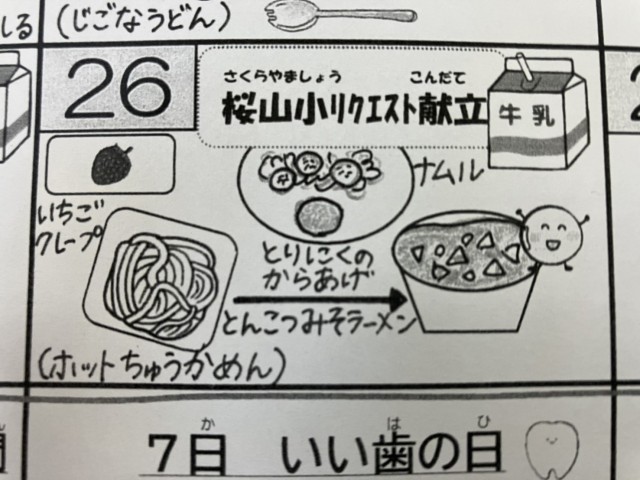 しる
(じごなうどん)
26
さくらやましょう こんだて
桜山小リクエスト献立
牛乳
ナムル
いちご
クレープ
とりにくの
からあげ
とんこつみそラーメン
(ホットちゅうかめん)
か は ひ
7日 いい歯の日